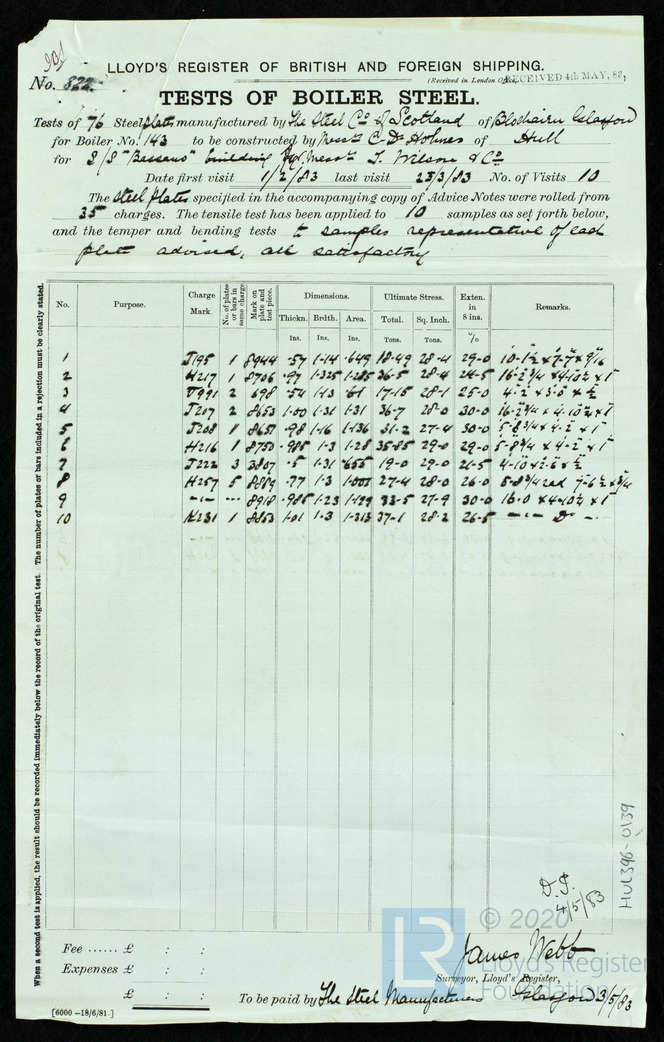 901
LLOYD'S REGISTER OF BRITISH AND FOREIGN SHIPPING.
No. 822. (Received in London Office RECEIVED 4th MAY, 83)
TESTS OF BOILER STEEL.
Tests of 76 Steel plates manufactured by The Steel Co of Scotland of Blochairn Glasgow
for Boiler No. 143 to be constructed by Messrs C. D. Holmes of Hull
for S/S "Bassano" building for Messrs T. Wilson & Co
Date first visit 1/2/83 last visit 23/3/83 No. of Visits 10
The steel plates specified in the accompanying copy of Advice Notes were rolled from
35 charges. The tensile test has been applied to 10 samples as set forth below,
and the temper and bending tests to samples representative of each
plate advised, all satisfactory
When a second test is applied, the result should be recorded immediately below the record of the original test. The number of plates or bars included in a rejection must be clearly stated.
No. Purpose. Charge Mark. No. of plates or bars in same charge Mark on plate and test piece. Dimensions. Ultimate Stress. Exten. in 8 ins. Remarks.
Thickn. Brdth. Area. Total. Sq. Inch.
Ins. Ins. Tons. Tons. %
1 J195 1 8944 .57 1.14 .649 18.49 28.4 29.0 10-1½ x 7-7 x 9/16
2 H217 1 8706 .97 1.325 1.285 36.5 28.4 24.5 16-2¾ x 4-10½ x 1
3 2 698 .54 1.13 .61 17.15 28.1 25.0 4-2 x 3-0 x ½
4 J207 2 8653 1.00 1.31 1.31 36.7 28.0 30.0 16-2¾ x 4-10½ x 1
5 J208 1 8651 .98 1.16 1.136 31.2 27.4 30.0 5-8¾ x 4-2 x 1
6 H216 1 8750 .985 1.3 1.28 35.85 29.0 29.0 5-8¾ x 4-2 x 1
7 J222 3 3807 .5 1.31 .655 19.0 29.0 21.5 4-10 x 2-6 x ½
8 H257 5 8889 .77 1.3 1.001 27.4 28.0 26.0 5-8¾ rad 7-6½ x ¾
9 -"- --- 8918 .985 1.23 1.199 33.5 27.9 30.0 16.0 x 4-10½ x 1
10 K231 1 8863 1.01 1.3 1.313 37.1 28.2 26.5 -"- Do -"-
HUL396-0139
4/5/83
LR © 2020
Lloyd's Register
Foundation
Fee ...... £ : :
James Webb
Expenses £ : :
Surveyor, Lloyd's Register,
£ : :
To be paid by The Steel Manufacturers Glasgow 3/5/83
[6000—18/6/81.]